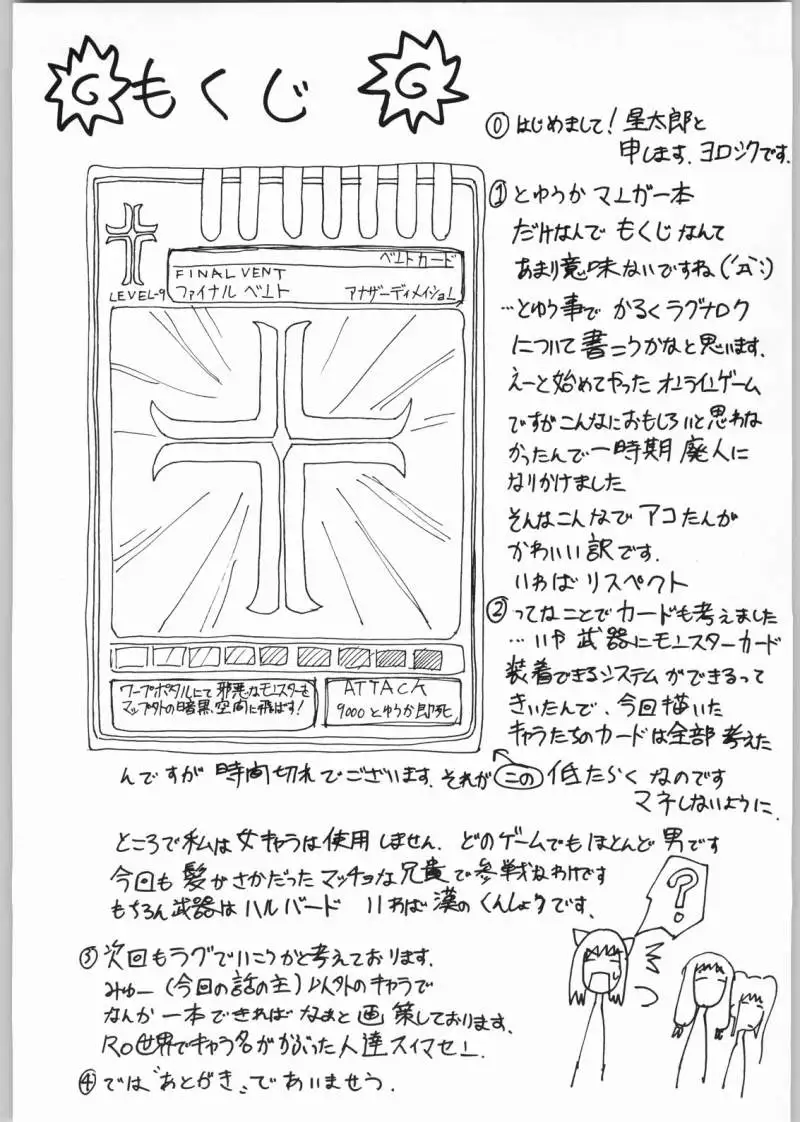 G もくじ G
⓪ はじめまして!星太郎と
申します、ヨロシクです。
① とゆうかマンガ一本
だけなんでもくじなんて
あまり意味ないですね(´д`;)
…とゆう事でかるくラグナロク
について書こうかなと思います。
えーと始めてやったオンラインゲーム
ですがこんなにおもしろいと思わな
かったんで一時期廃人に
なりかけました
そんなこんなでアコたんが
かわいい訳です。
いわばリスペクト
② ってなことでカードも考えました
…いや武器にモンスターカード
装着できるシステムができるって
きいたんで、今回描いた
キャラたちのカードは全部考えた
んですが時間切れでございます。それがこの低たらくなのです
マネしないように。
LEVEL-9
ベントカード
FINAL VENT
ファイナルベント アナザーディメイション
ワープポタルにて邪悪なモンスターを
マップ外の暗黒空間に飛ばす!
ATTACK
9000とゆうか即死
ところで私は女キャラは使用しません。どのゲームでもほとんど男です
今回も髪がさかだったマッチョな兄貴で参戦なわけです
もちろん武器はハルバード いわば漢のくんしょうです。
?
③ 次回もラグでいこうかと考えております。
みゅー(今回の話の主)以外のキャラで
なんか一本できればなぁと画策しております。
RO世界でキャラ名がかぶった人達スイマセン。
④ では"あとがき"であいませう。